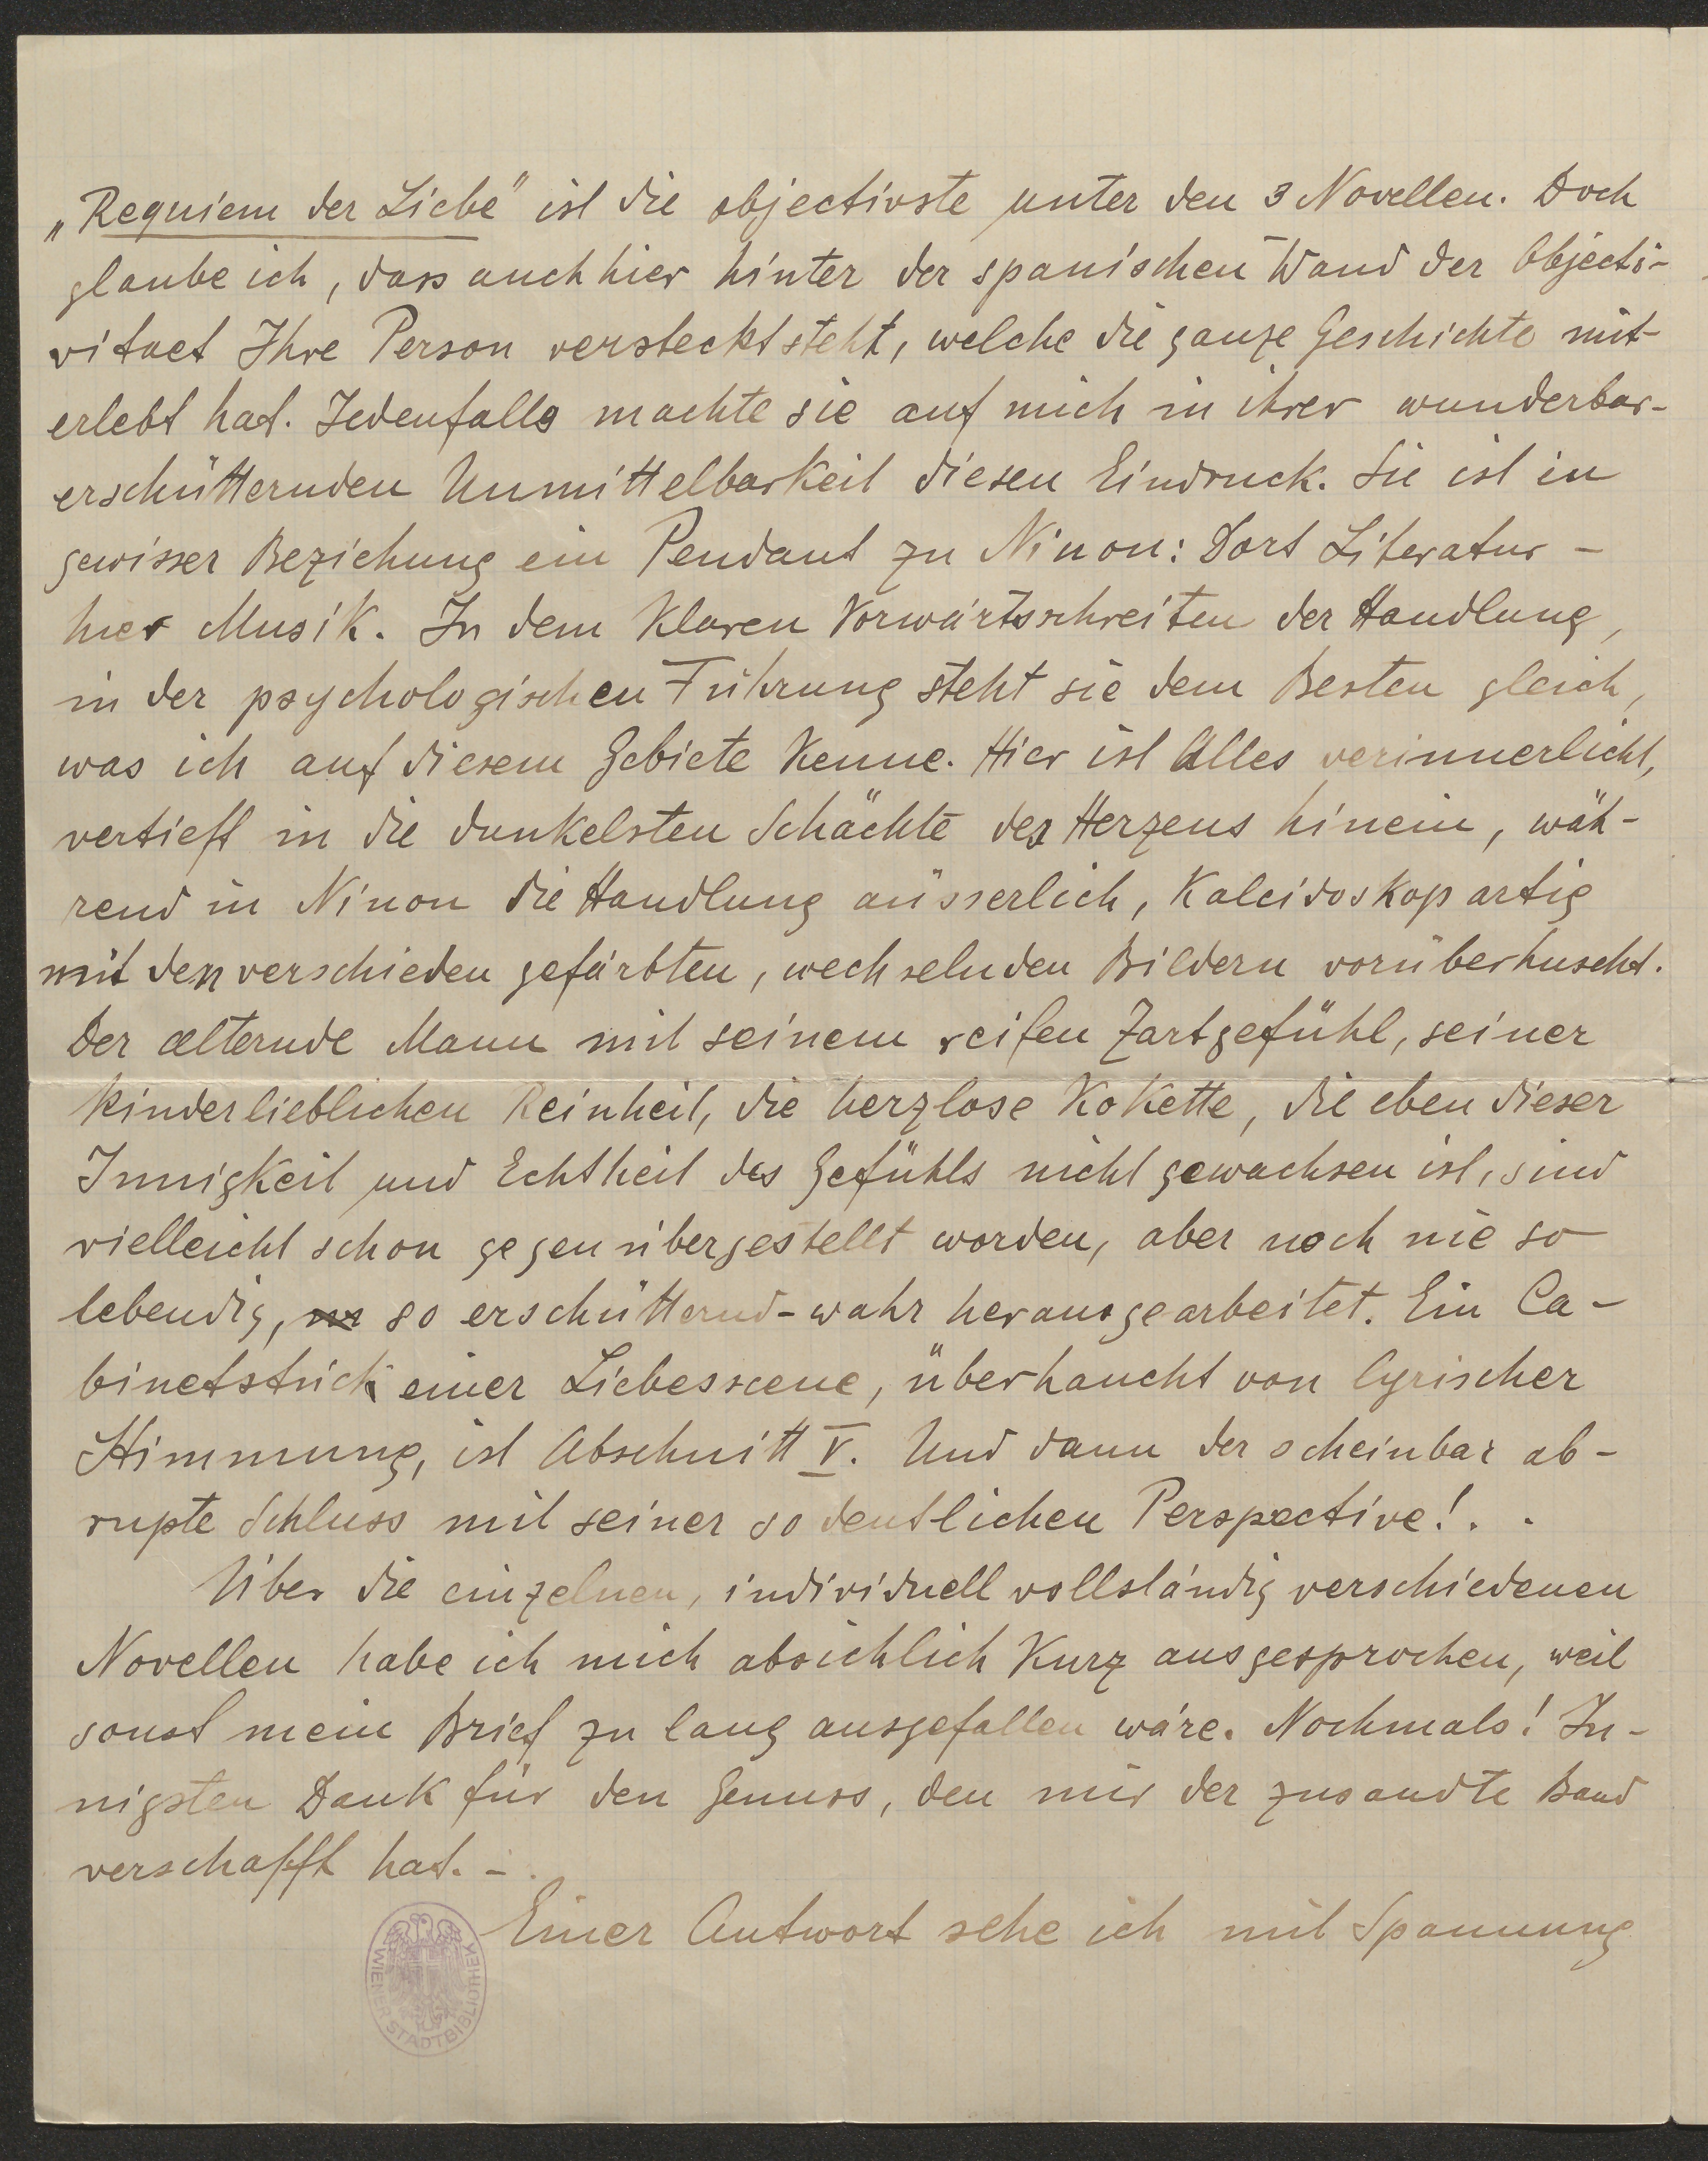 „Requiem der Liebe" ist die objectivste unter den 3 Novellen. Doch
glaube ich, dass auch hier hinter der spanischen Wand der Objecti-
vitaet Ihre Person versteckt steht, welche die ganze Geschichte mit-
erlebt hat. Jedenfalls machte sie auf mich in ihrer wunderbar-
erschütternden Unmittelbarkeit diesen Eindruck. Sie ist in
gewisser Beziehung ein Pendant zu Ninon: Dort Literatur -
hier Musik. In dem klaren Vorwärtsschreiten der Handlung,
in der psychologischen Führung steht sie dem Besten gleich,
was ich auf diesem Gebiete kenne. Hier ist Alles verinnerlicht,
vertieft in die dunkelsten Schächte des Herzens hinein, wäh-
rend in Ninon die Handlung äusserlich, kaleidoskopartig
mit den verschieden gefärbten, wechselnden Bildern vorüberhuscht.
Der aelternde Mann mit seinem reifen Zartgefühl, seiner
kinderlieblichen Reinheit, die herzlose Kokette, die eben dieser
Innigkeit und Echtheit des Gefühls nicht gewachsen ist, sind
vielleicht schon gegenübergestellt worden, aber noch nie so
lebendig, so erschütternd-wahr herausgearbeitet. Ein Ca-
binetstück einer Liebesscene, überhaucht von lyrischer
Stimmung, ist Abschnitt V. Und dann der scheinbar ab-
rupte Schluss mit seiner so deutlichen Perspective! . .
Über die einzelnen, individuell vollständig verschiedenen
Novellen habe ich mich absichlich kurz ausgesprochen, weil
sonst mein Brief zu lang ausgefallen wäre. Nochmals! In-
nigsten Dank für den Genuss, den mir der zusandte Band
verschafft hat. -.
Einer Antwort sehe ich mit Spannung
WIENER STADTBIBLIOTHEK